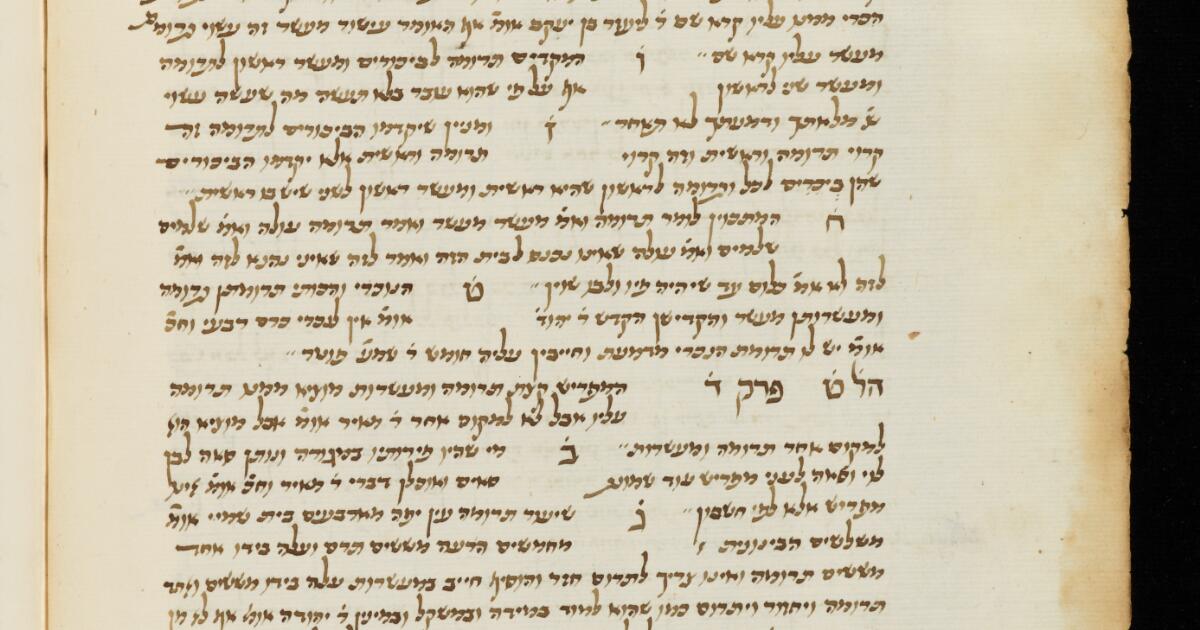 הכרי ממע׳ עליו קרא שם ר׳ ליעזר בן יעקב אומ׳ אף האומר עישור מעשר זה עשוי כתרומת
מעשר עליו קרא שם ׃ ו המקדים תרומה לביכורים ומעשר ראשון לתרומה
ומעשר שני לראשון אף על פי שהוא עובר בלא תעשה מה שעשה עשוי
שנ׳ מלאתך ודמעתך לא תאחר ׃ ז ומניין שיקדמו הביכורים לתרומה זה
קרוי תרומה וראשית וזה קרוי תרומה וראשית אלא יקדמו הביכורים
שהן ביכורים לכל ותרומה לראשון שהיא ראשית ומעשר ראשון לשני שיש בו ראשית ׃
ח המתכוין לומר תרומה ואמ׳ מעשר מעשר ואמר תרומה עולה ואמ׳ שלמים
שלמים ואמ׳ עולה שאיני נכנס לבית הזה ואמר לזה שאיני נהנא לזה ואמ׳
לזה לא אמ׳ כלום עד שיהיה פיו ולבו שוין ׃ ט הנוכרי והכותי תרומתן תרומה
ומעשרותן מעשר והקדישן הקדש ר׳ יהוד׳ אומ׳ אין לנכרי כרם רבעי וחכ׳
אומ׳ יש לו תרומת הנכרי מדמעת וחייבין עליה חומש ר׳ שמע׳ פוטר ׃
הל׳ ט פרק ד המפריש קצת תרומה ומעשרות מוציא ממנו תרומה
עליו אבל לא למקום אחר ר׳ מאיר אומ׳ אבל מוציא הוא
למקום אחר תרומה ומעשרות ׃ ב מי שהיו פירותיו במגורה ונותן סאה לבן
לוי וסאה לעני מפריש עוד שמונה סאים ואוכלן דברי ר׳ מאיר וחכ׳ אומ׳ אינו
מפריש אלא לפי חשבון ׃ ג שיעור תרומה עין יפה מארבעים בית שמיי אומ׳
משלשים הבינונית מחמשים הרעה מששים תרם ועלה בידו אחד
מששים תרומה ואינו צריך לתרום חזר והוסיף חייב במעשרות עלה בידו מששים ואחד
תרומה ויחזור ויתרום כמו שהוא למוד במידה ובמשקל ובמינין ר׳ יהודה אומ׳ אף לו מן